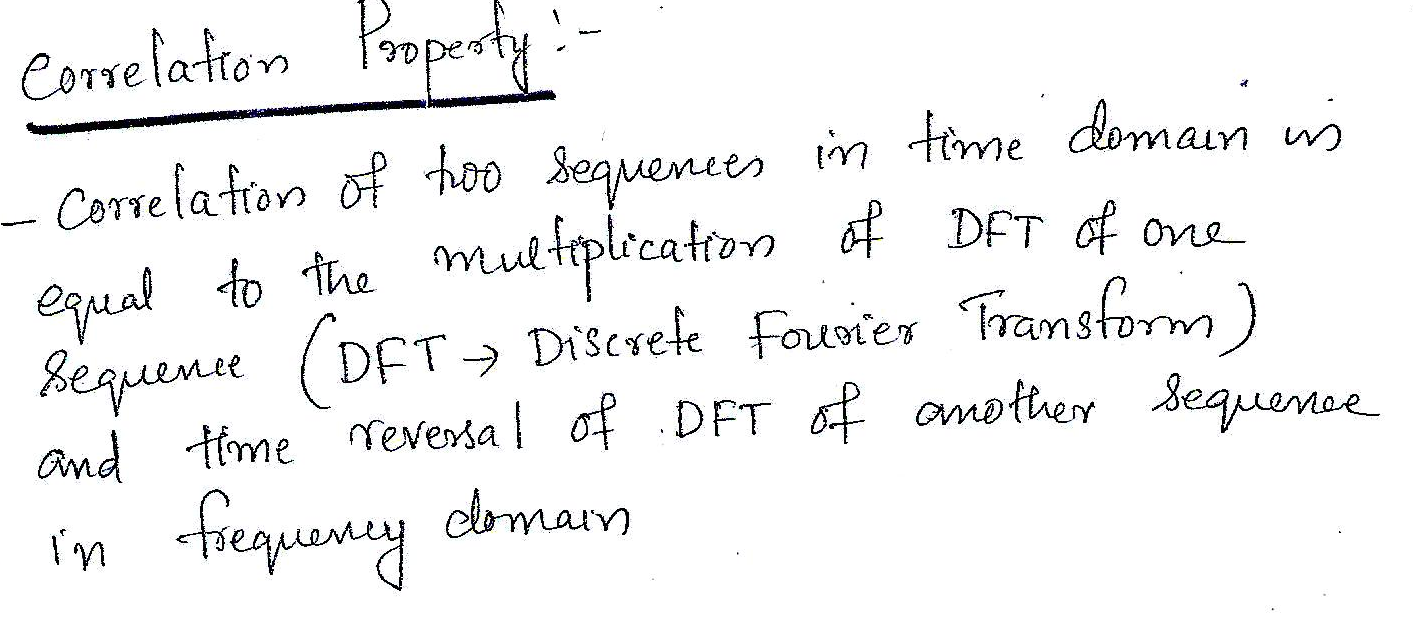 Correlation Property :-
- Correlation of two sequences in time domain is
equal to the multiplication of DFT of one
sequence (DFT → Discrete Fourier Transform)
and time reversal of DFT of another sequence
in frequency domain